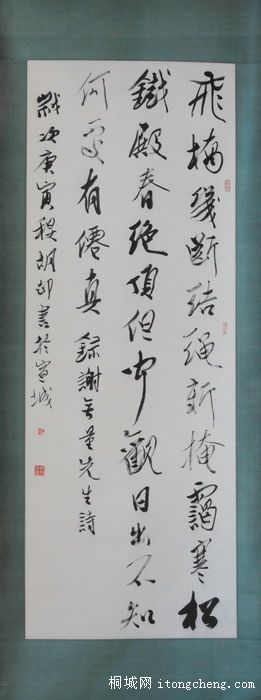 飛橋斷結繩新掩靄寒松
鐵殿春絕頂但聞觀日出不知
何處有僊真 錄謝無量先生詩
歲次庚寅胡書於宣城
桐城网 itongcheng.com